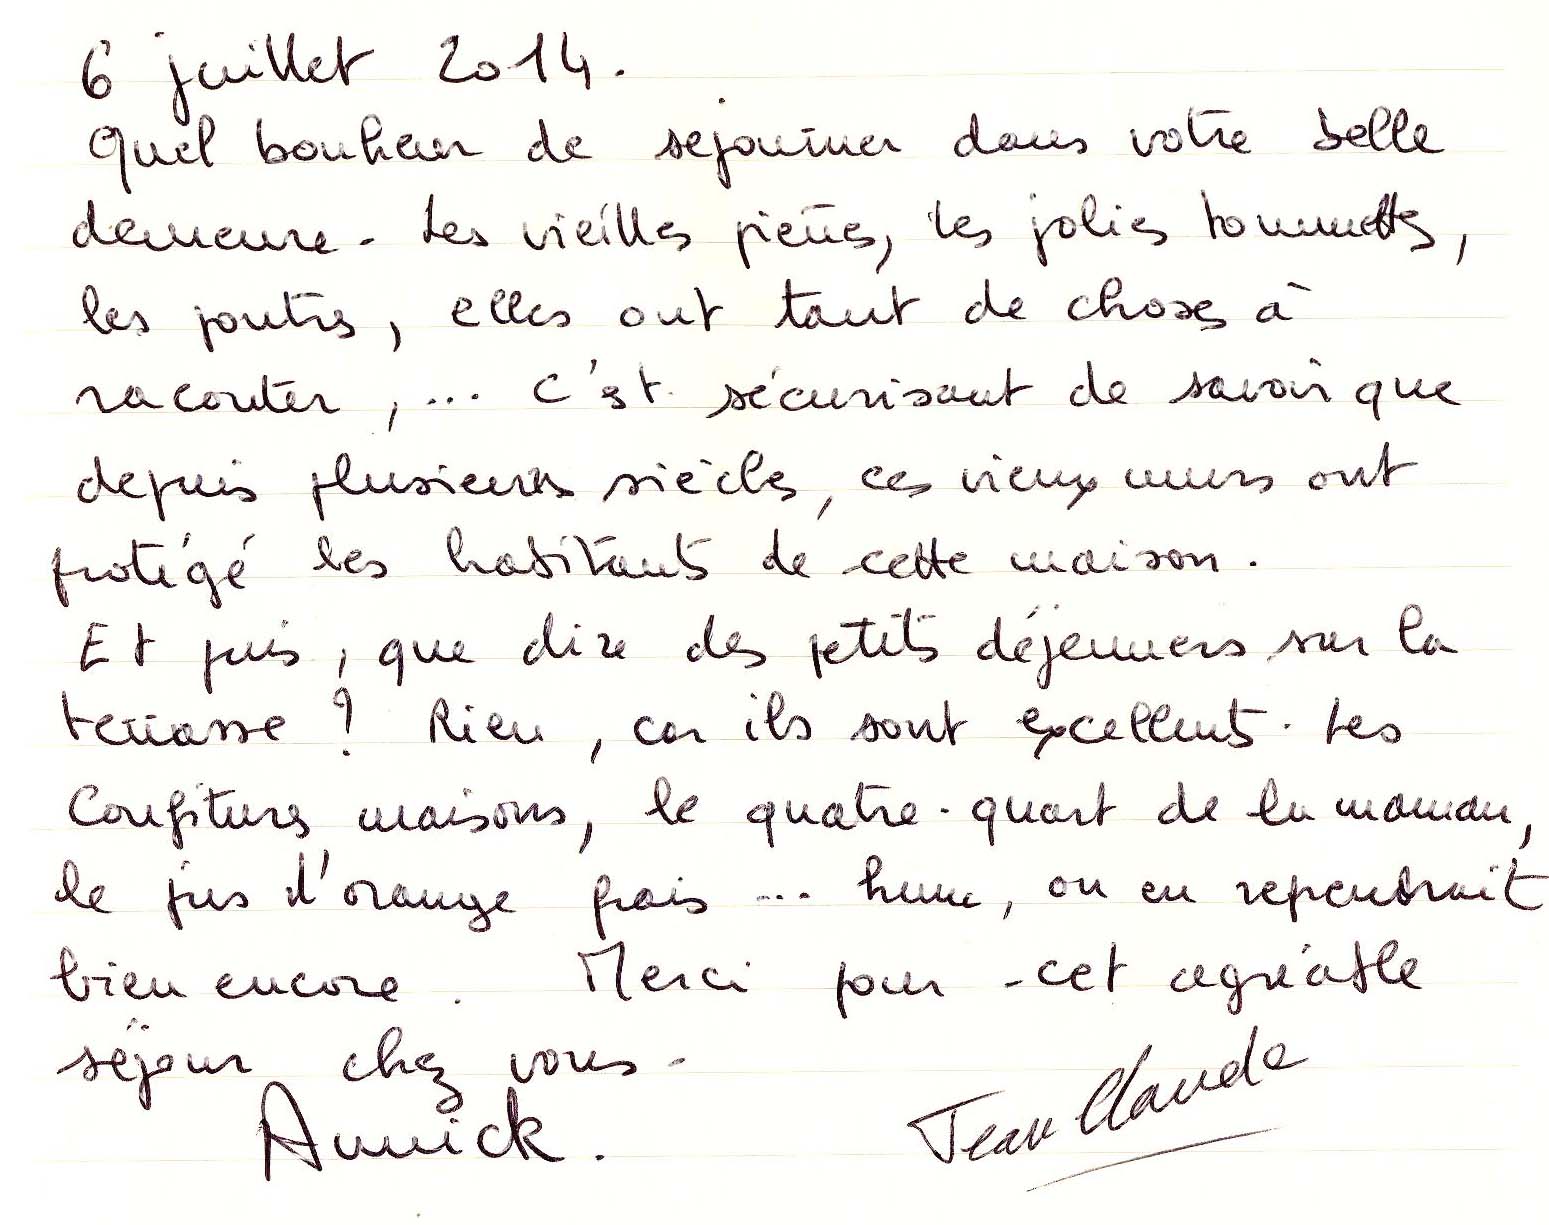 6 juillet 2014.
Quel bonheur de séjourner dans votre belle
demeure. Les vieilles pierres, les jolies tommettes,
les poutres, elles ont tant de choses à
raconter, ... C'est sécurisant de savoir que
depuis plusieurs siècles, ces vieux murs ont
protégé les habitants de cette maison.
Et puis, que dire des petits déjeuners sur la
terrasse ? Rien, car ils sont excellents. Les
confitures maisons, le quatre-quart de la maman,
le jus d'orange frais ... hum, on en reprendrait
bien encore. Merci pour cet agréable
séjour chez vous.
Annick. Jean Claude